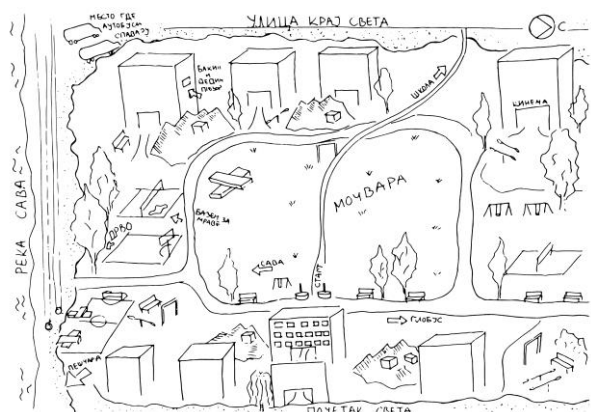 МЕСТО ГДЕ
АУТОБУСИ
СПАВАЈУ
УЛИЦА КРАЈ СВЕТА
С
БАКИН
И
ДЕДИН
ШКОЛА
КИНЕМА
МОЧВАРА
БАЗЕН ЗА
МРАВЕ
ДРВО
РЕКА САВА
САВА
СТАРТ
ГЛОБУС
ПЕШЧАРА
ПОЧЕТАК СВЕТА